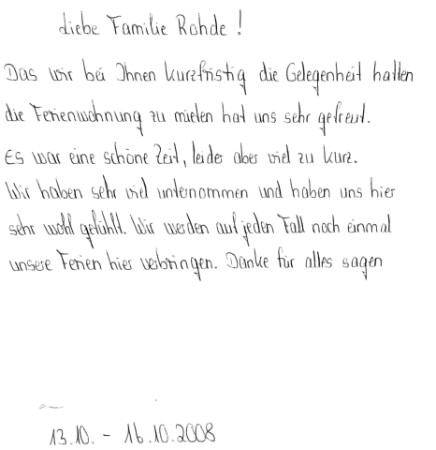 Liebe Familie Rohde !
Das wir bei Ihnen kurzfristig die Gelegenheit hatten
die Ferienwohnung zu mieten hat uns sehr gefreut.
Es war eine schöne Zeit, leider aber viel zu kurz.
Wir haben sehr viel unternommen und haben uns hier
sehr wohl gefühlt. Wir werden auf jeden Fall noch einmal
unsere Ferien hier verbringen. Danke für alles sagen
13.10. - 16.10.2008